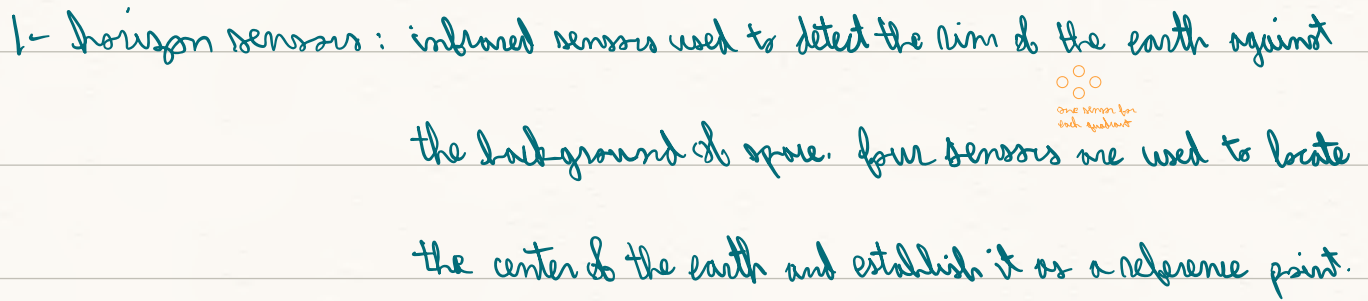 1- horizon sensors: infrared sensors used to detect the rim of the earth against
one sensor for
each quadrant
the background of space. four sensors are used to locate
the center of the earth and establish it as a reference point.